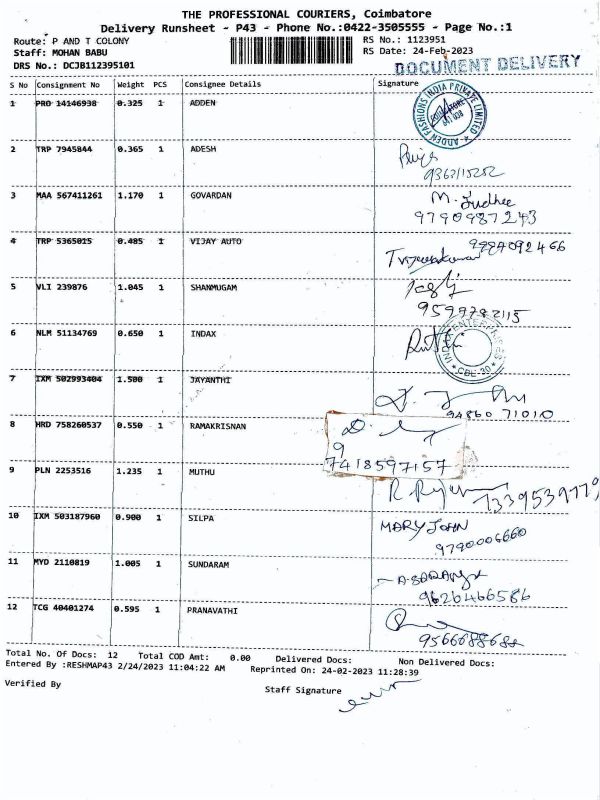 THE PROFESSIONAL COURIERS, Coimbatore
Delivery Runsheet - P43 - Phone No.:0422-3505555 - Page No.:1
Route: P AND T COLONY
RS No.: 1123951
Staff: MOHAN BABU
RS Date: 24-Feb-2023
DRS No.: DCJB112395101
DOCUMENT DELIVERY
S No Consignment No Weight PCS Consignee Details Signature
1 PRO 14146938 0.325 1 ADDEN
ADDEN FASHIONS INDIA PRIVATE LIMITED
2 TRP 7945844 0.365 1 ADESH
3 MAA 567411261 1.170 1 GOVARDAN
M.
9790987243
4 TRP 5365015 0.485 1 VIJAY AUTO
5 VLI 239876 1.045 1 SHANMUGAM
6 NLM 51134769 0.650 1 INDAX
ENTERPRISES
CBE-30
7 IXM 502993404 1.500 1 JAYANTHI
94860 71010
8 HRD 758260537 0.550 1 RAMAKRISNAN
7418597157
9 PLN 2253516 1.235 1 MUTHU
10 IXM 503187960 0.900 1 SILPA
MARY JOHN
9790006660
11 MYD 2110819 1.005 1 SUNDARAM
9626466586
12 TCG 40401274 0.595 1 PRANAVATHI
Total No. Of Docs: 12 Total COD Amt: 0.00 Delivered Docs: Non Delivered Docs:
Entered By :RESHMAP43 2/24/2023 11:04:22 AM Reprinted On: 24-02-2023 11:28:39
Verified By
Staff Signature